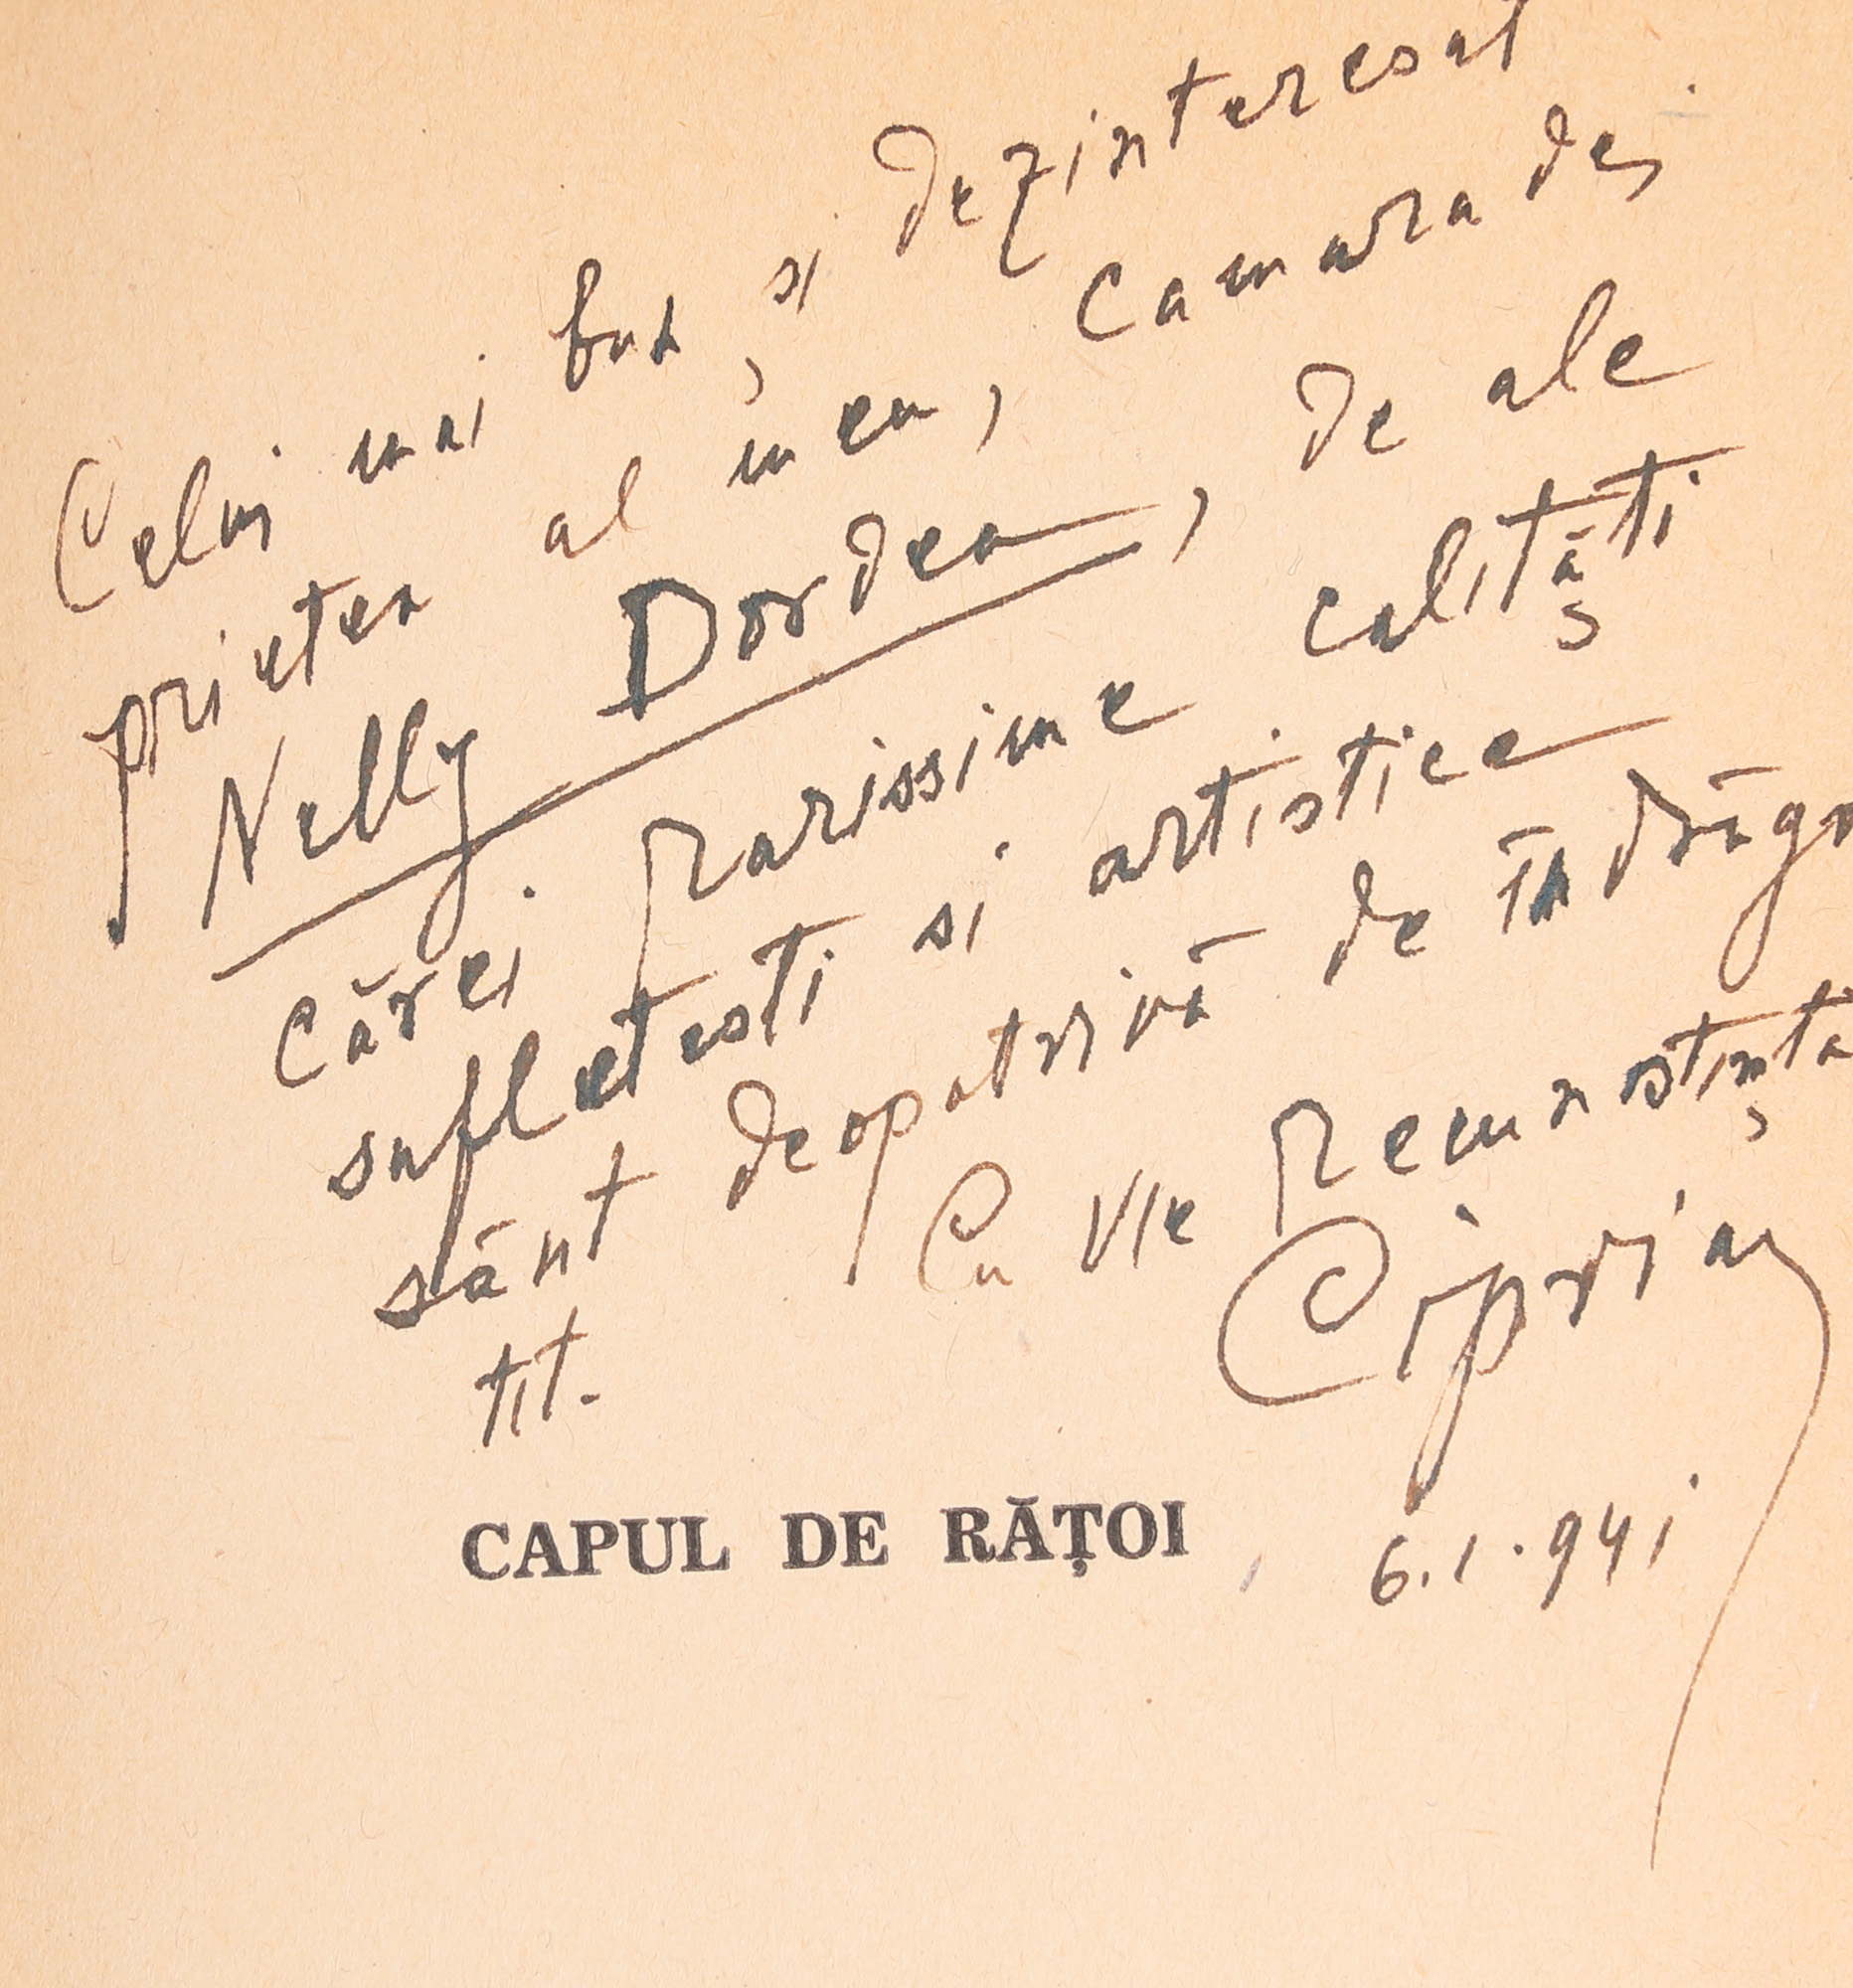 Celui mai bun, și dezinteresat
prieten al meu, camaradei
Nelly Dordea, de ale
cărei rarissime calități
sufletesti si artistice
sânt deopotrivă de îndrăgos
tit.
Cu vie recunostința
Ciprian
6.1.941
CAPUL DE RĂȚOI